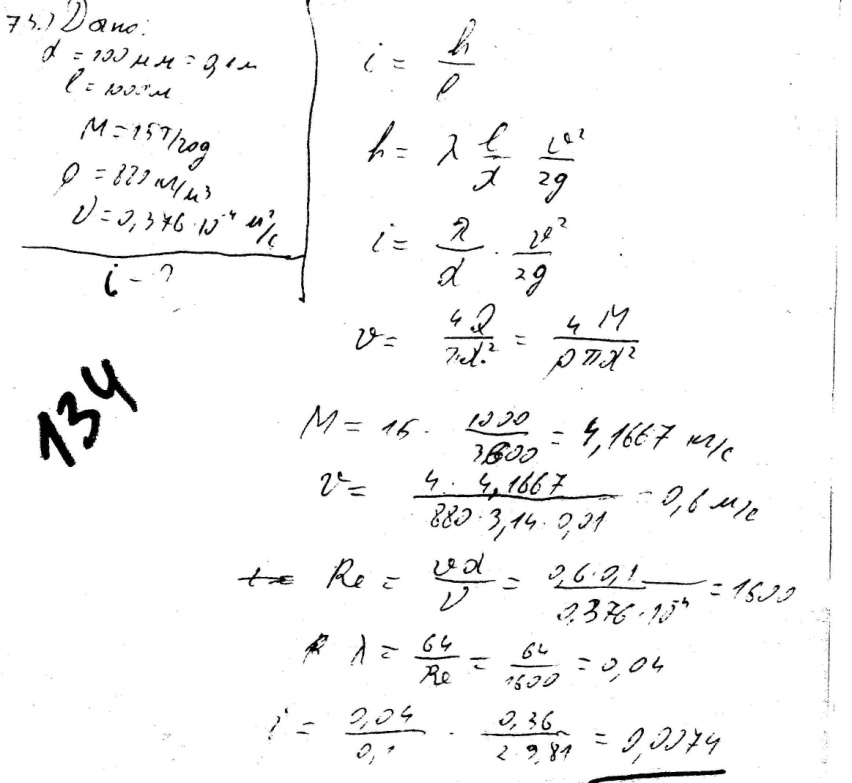 73.) Дано:
d = 100 мм = 0,1 м
l = 1000 м
M = 15 т/год
ρ = 880 кг/м³
ν = 0,376·10⁻⁴ м²/с
i - ?
134
i = h/l
h = λ l/d v²/2g
i = λ/d · v²/2g
v = 4Q/πd² = 4M/ρπd²
M = 15 · 1000/3600 = 4,1667 кг/с
v = 4·4,1667/880·3,14·0,01 = 0,6 м/с
Re = vd/ν = 0,6·0,1/0,376·10⁻⁴ = 1600
λ = 64/Re = 64/1600 = 0,04
i = 0,04/0,1 · 0,36/2·9,81 = 0,0074